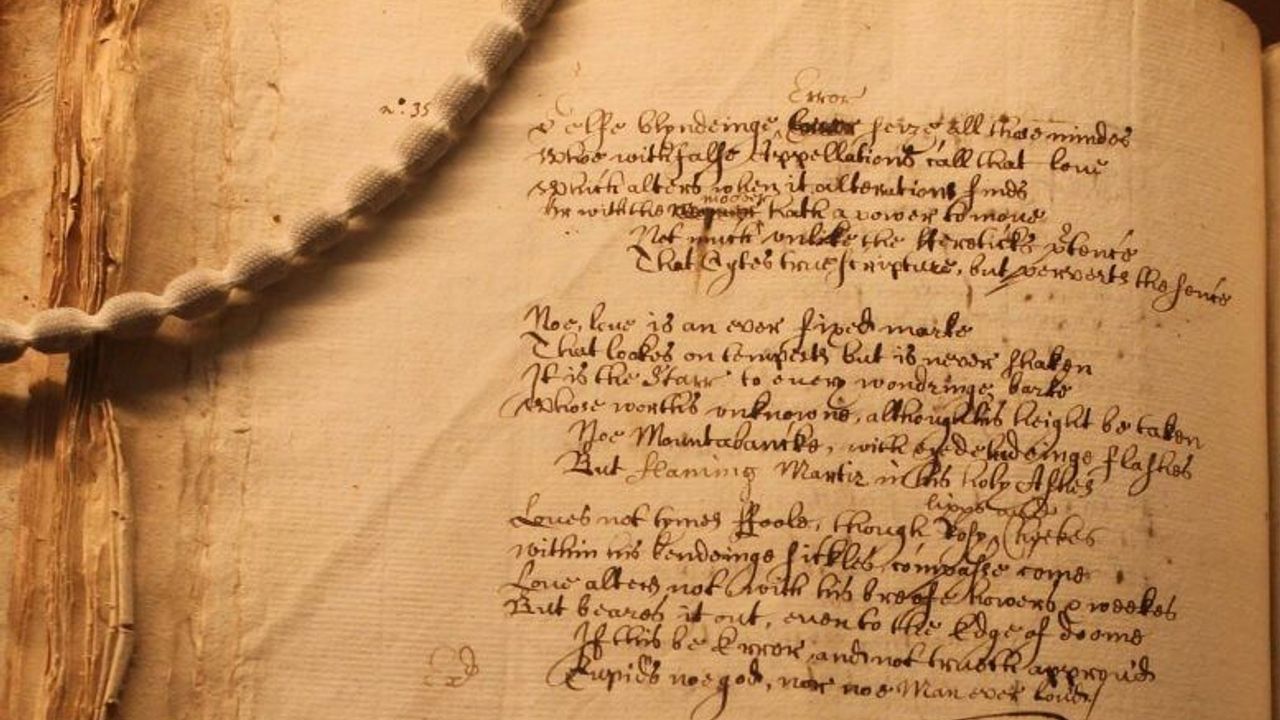 n.º 35
Error
Selfe blyndeinge seize all those mindes
Whoe with false Appellations call that loue
Which alters when it alterations finds
moover
Or with the hath a power to moue
Not much vnlike the Hereticks ptence
That Cytes true scripture, but perverts the sence
Noe, loue is an ever fixed marke
That lookes on tempests but is never shaken
It is the Starr to euery wondringe barke
Whose worths vnknowne, although his height be taken
Noe Mountabancke, with flashes
But flaming Martir in his holy Ashes
lipps and
Loues not tymes ffoole, though Rosy Cheekes
within his bendeinge sickles compasse come
Loue alters not with his breefe howers & weekes
But beares it out, even to the Edge of doome
If this be Error and not truth approud
Cupids noe god, nor noe Man ever loud